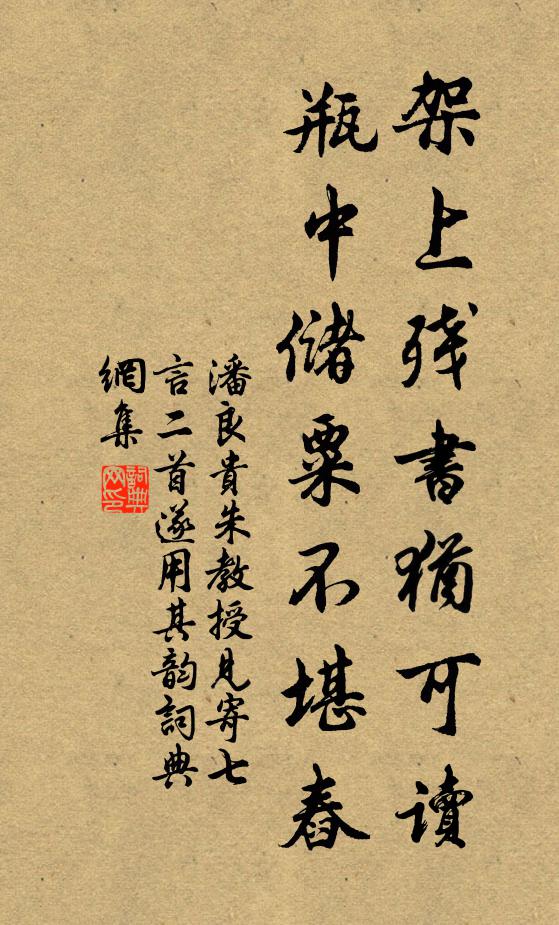 架上残書猶可讀
瓶中儲粟不堪舂
潘良貴朱教授見寄七
言二首遂用其韵詞典
網集
詞典
网印